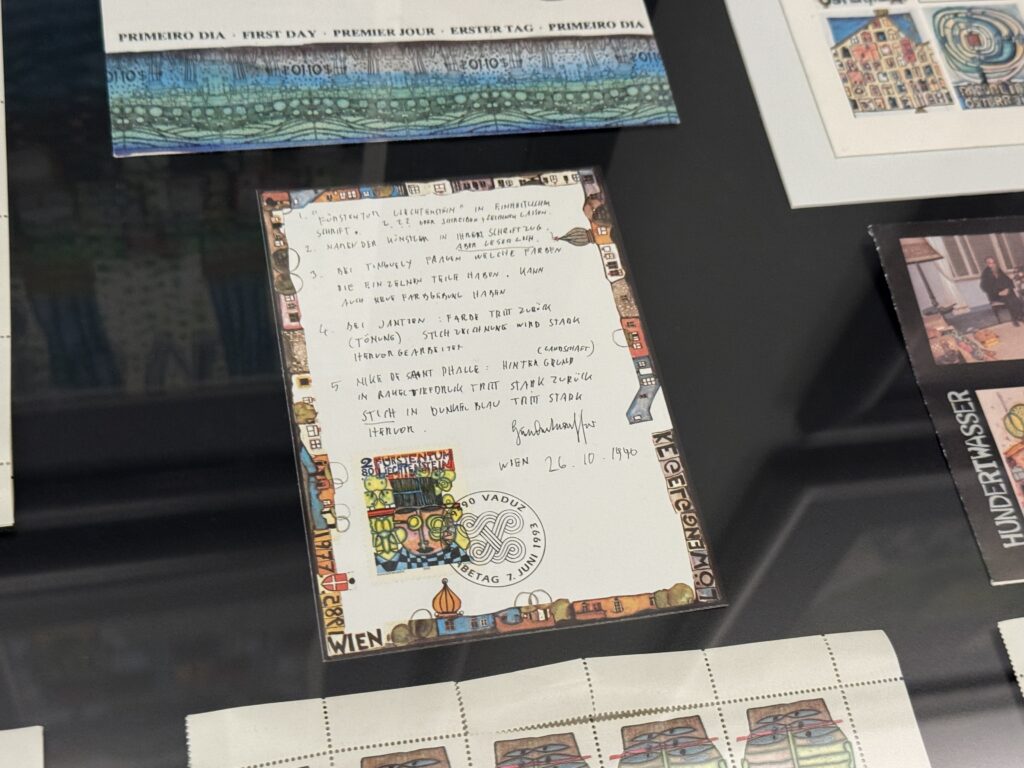 PRIMEIRO DIA · FIRST DAY · PREMIER JOUR · ERSTER TAG · PRIMEIRO DIA
1. "FÜRSTENTUM LIECHTENSTEIN" IN EINHEITLICHER
SCHRIFT. ODER SCHREIBEN + ZEICHNEN LASSEN.
2. NAMEN DER KÜNSTLER IN IHREM SCHRIFTZUG.
ABER LESERLICH.
3. BEI TINGUELY FRAGEN WELCHE FARBEN
DIE EINZELNEN TEILE HABEN. KANN
AUCH NEUE FARBGEBUNG HABEN
4. BEI JANTZEN: FARBE TRITT ZURÜCK
(TÖNUNG) STICHZEICHNUNG WIRD STARK
HERVORGEARBEITET
(LANDSCHAFT)
5 NIKE DE SAINT PHALLE: HINTERGRUND
IN RAKELTIEFDRUCK TRITT STARK ZURÜCK
STICH IN DUNKELBLAU TRITT STARK
HERVOR.
WIEN 26.10.1990
FÜRSTENTUM
LIECHTENSTEIN
90 VADUZ
ABETAG 7. JUNI 1993
KEGELGASSE
LÖWENG
1977
1985
WIEN
HUNDERTWASSER